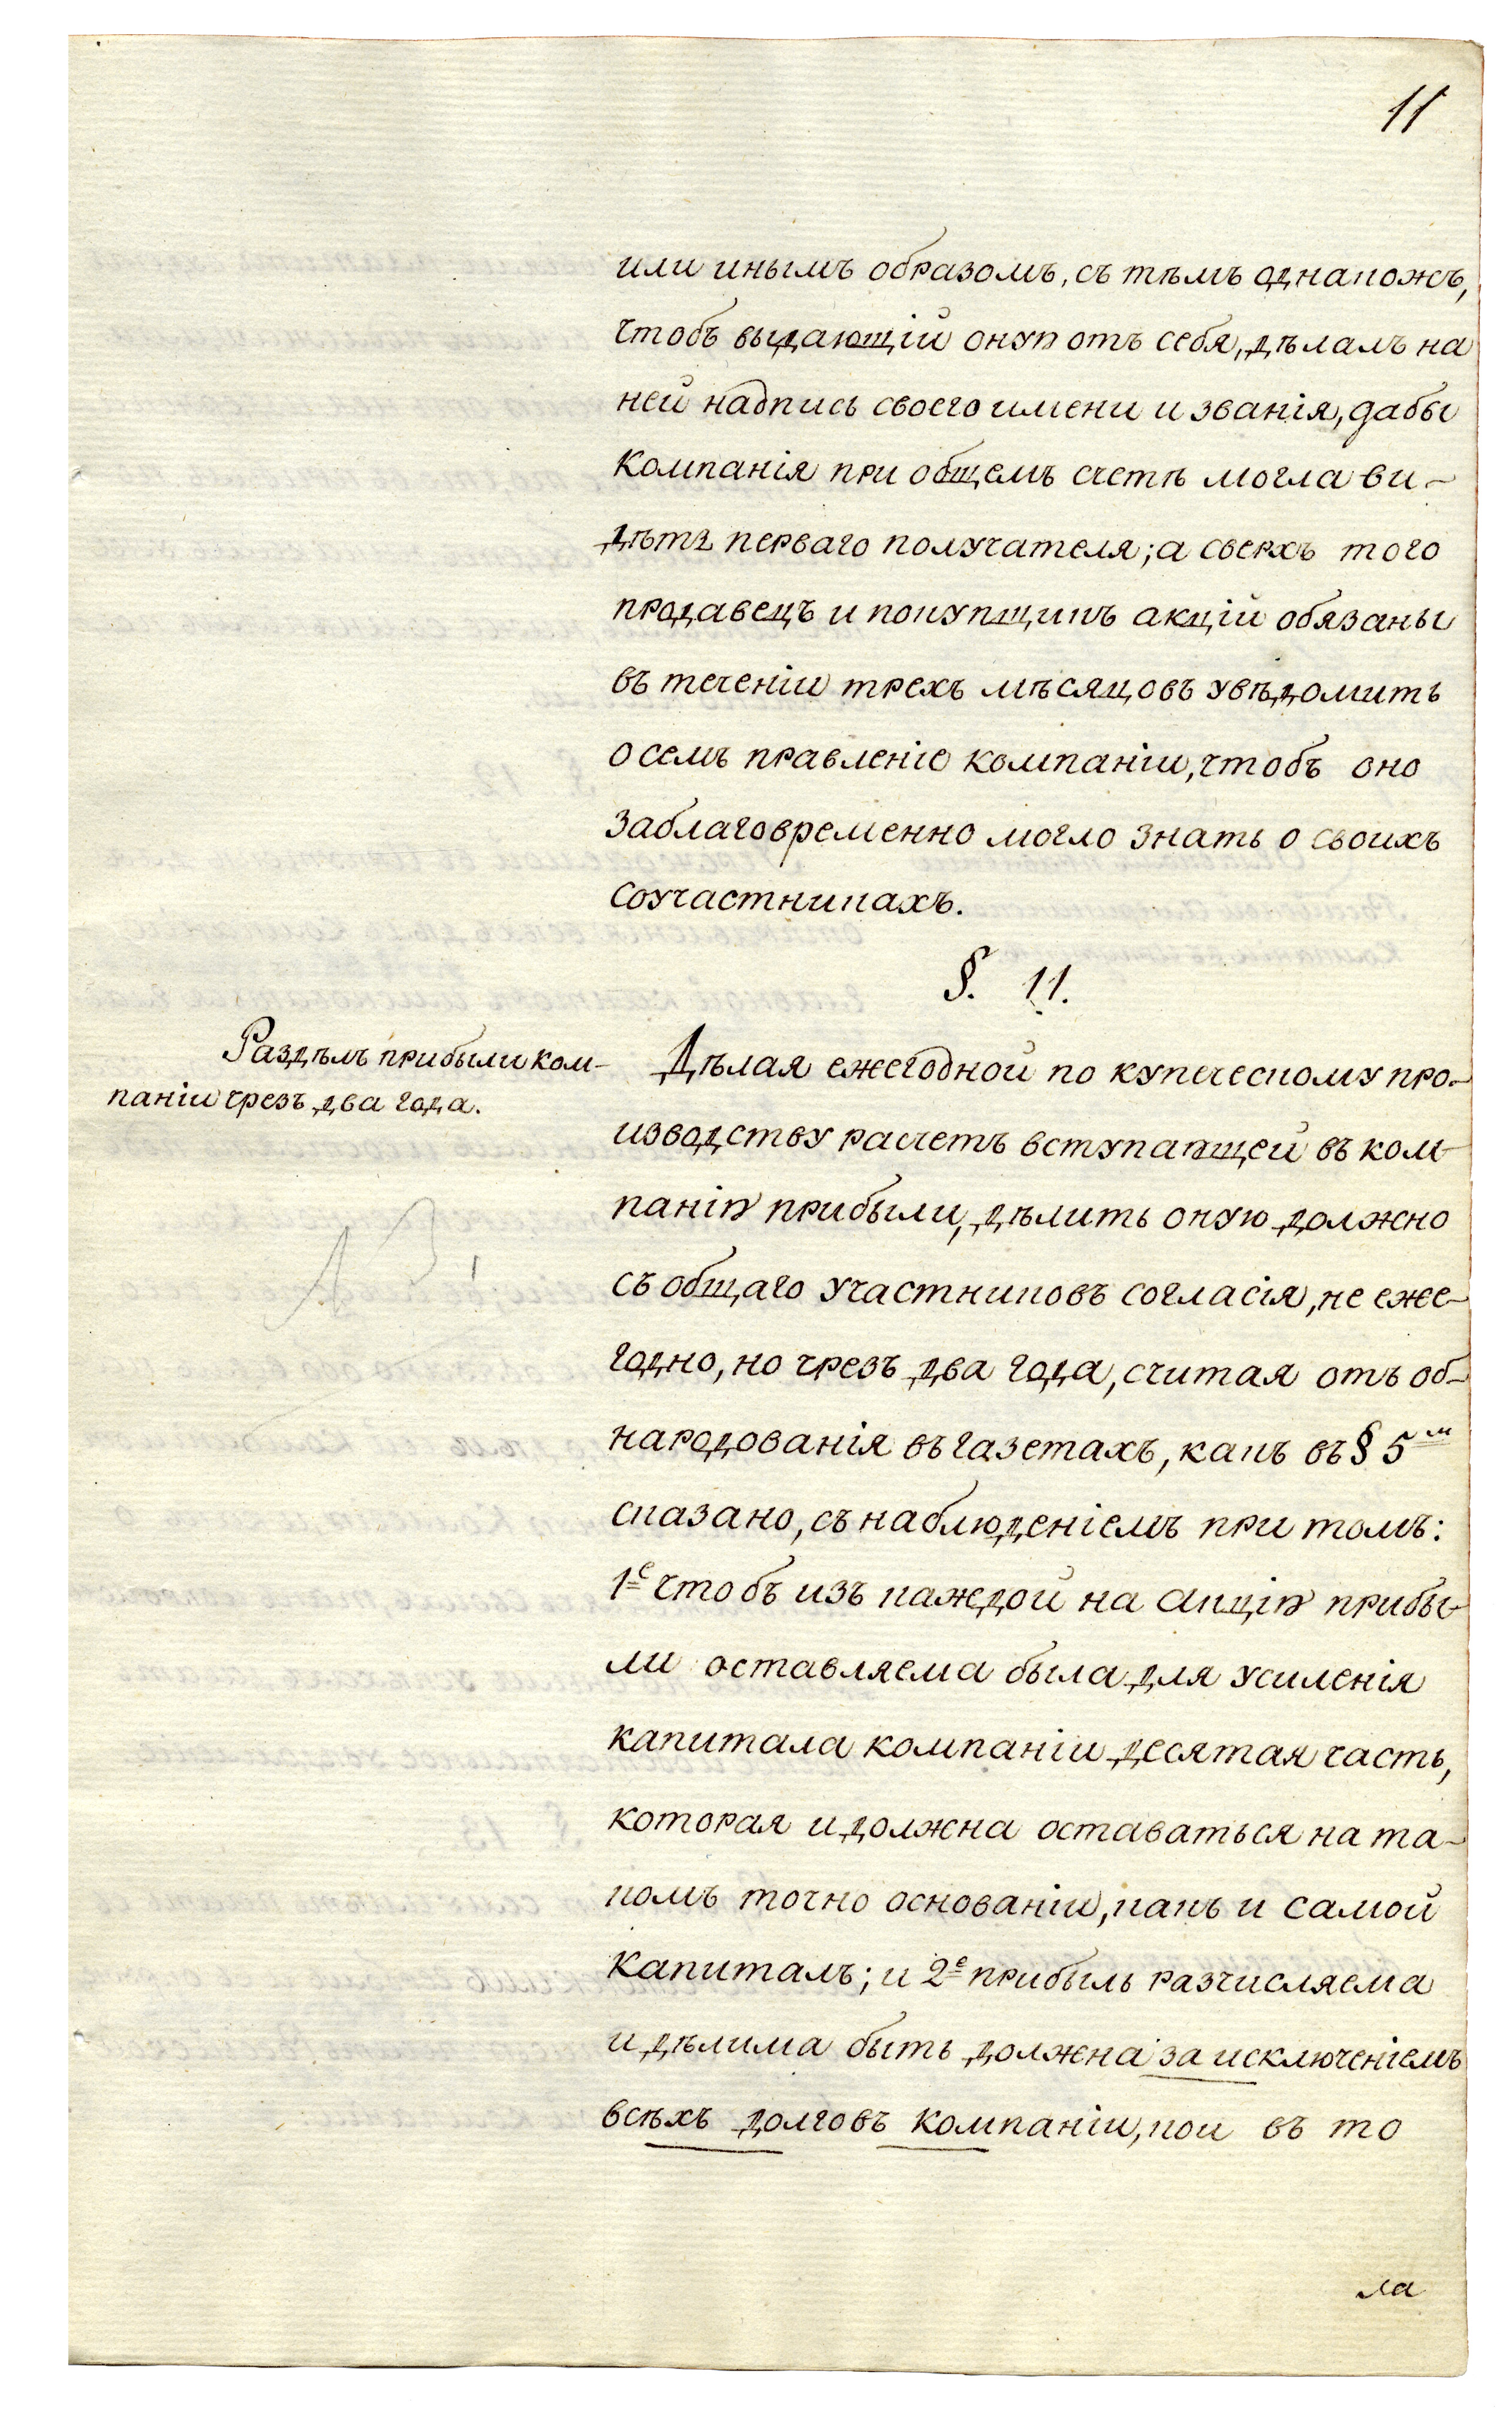 11
или инымъ образомъ, съ тѣмъ однакожъ,
чтобъ выдающій оную отъ себя, дѣлалъ на
ней надпись своего имени и званія, дабы
Компанія при общемъ счетѣ могла ви-
дѣть перваго получателя; а сверхъ того
продавецъ и покупщикъ акцій обязаны
въ теченіи трехъ мѣсяцовъ увѣдомить
о семъ правленіе компаніи, чтобъ оно
заблаговременно могло знать о своихъ
соучастникахъ.
§. 11.
Раздѣлъ прибыли ком-
паніи чрезъ два года.
Дѣлая ежегодной по купеческому про-
изводству расчетъ вступающей въ ком-
панію прибыли, дѣлить оную должно
съ общаго участниковъ согласія, не еже-
годно, но чрезъ два года, считая отъ об-
народованія въ газетахъ, какъ въ § 5м
сказано, съ наблюденіемъ при томъ:
1е чтобъ изъ каждой на акцію прибы-
ли оставляема была для усиленія
капитала компаніи десятая часть,
которая и должна оставаться на та-
комъ точно основаніи, какъ и самой
Капиталъ; и 2е прибыль разчисляема
и дѣлима быть должна за исключеніемъ
всѣхъ долговъ Компаніи, кои въ то